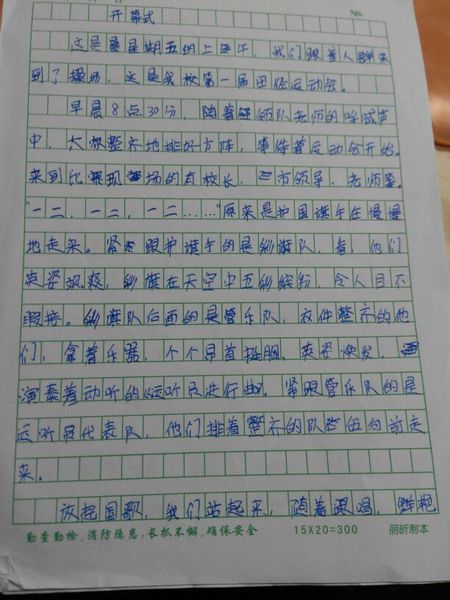 No.
开幕式
这是星期五的上午,我们跟着人群来
到了操场,这是我校第一届田径运动会。
早晨8点30分,随着领队老师的呼喊声
中,大家整齐地排好方阵,等待着运动会开始。
来到比赛现场的有校长,市领导,老师等。
“一二,一二,一二……”原来是护国旗手在慢慢
地走来。紧跟护旗手的是彩旗队,看,他们
英姿飒爽,彩旗在天空中五彩缤纷,令人目不
暇接。彩旗队后面的是管乐队,衣件整齐的他
们,拿着乐器,个个昂首挺胸,英姿焕发,
演奏着动听的《运动员进行曲》。紧跟管乐队的是
运动员代表队,他们排着整齐的队伍向前走
来。
放起国歌,我们站起来,随着眼鸡,鲜艳
勤查勤检,消防隐患;长抓不懈,确保安全 15X20=300 丽昕制本